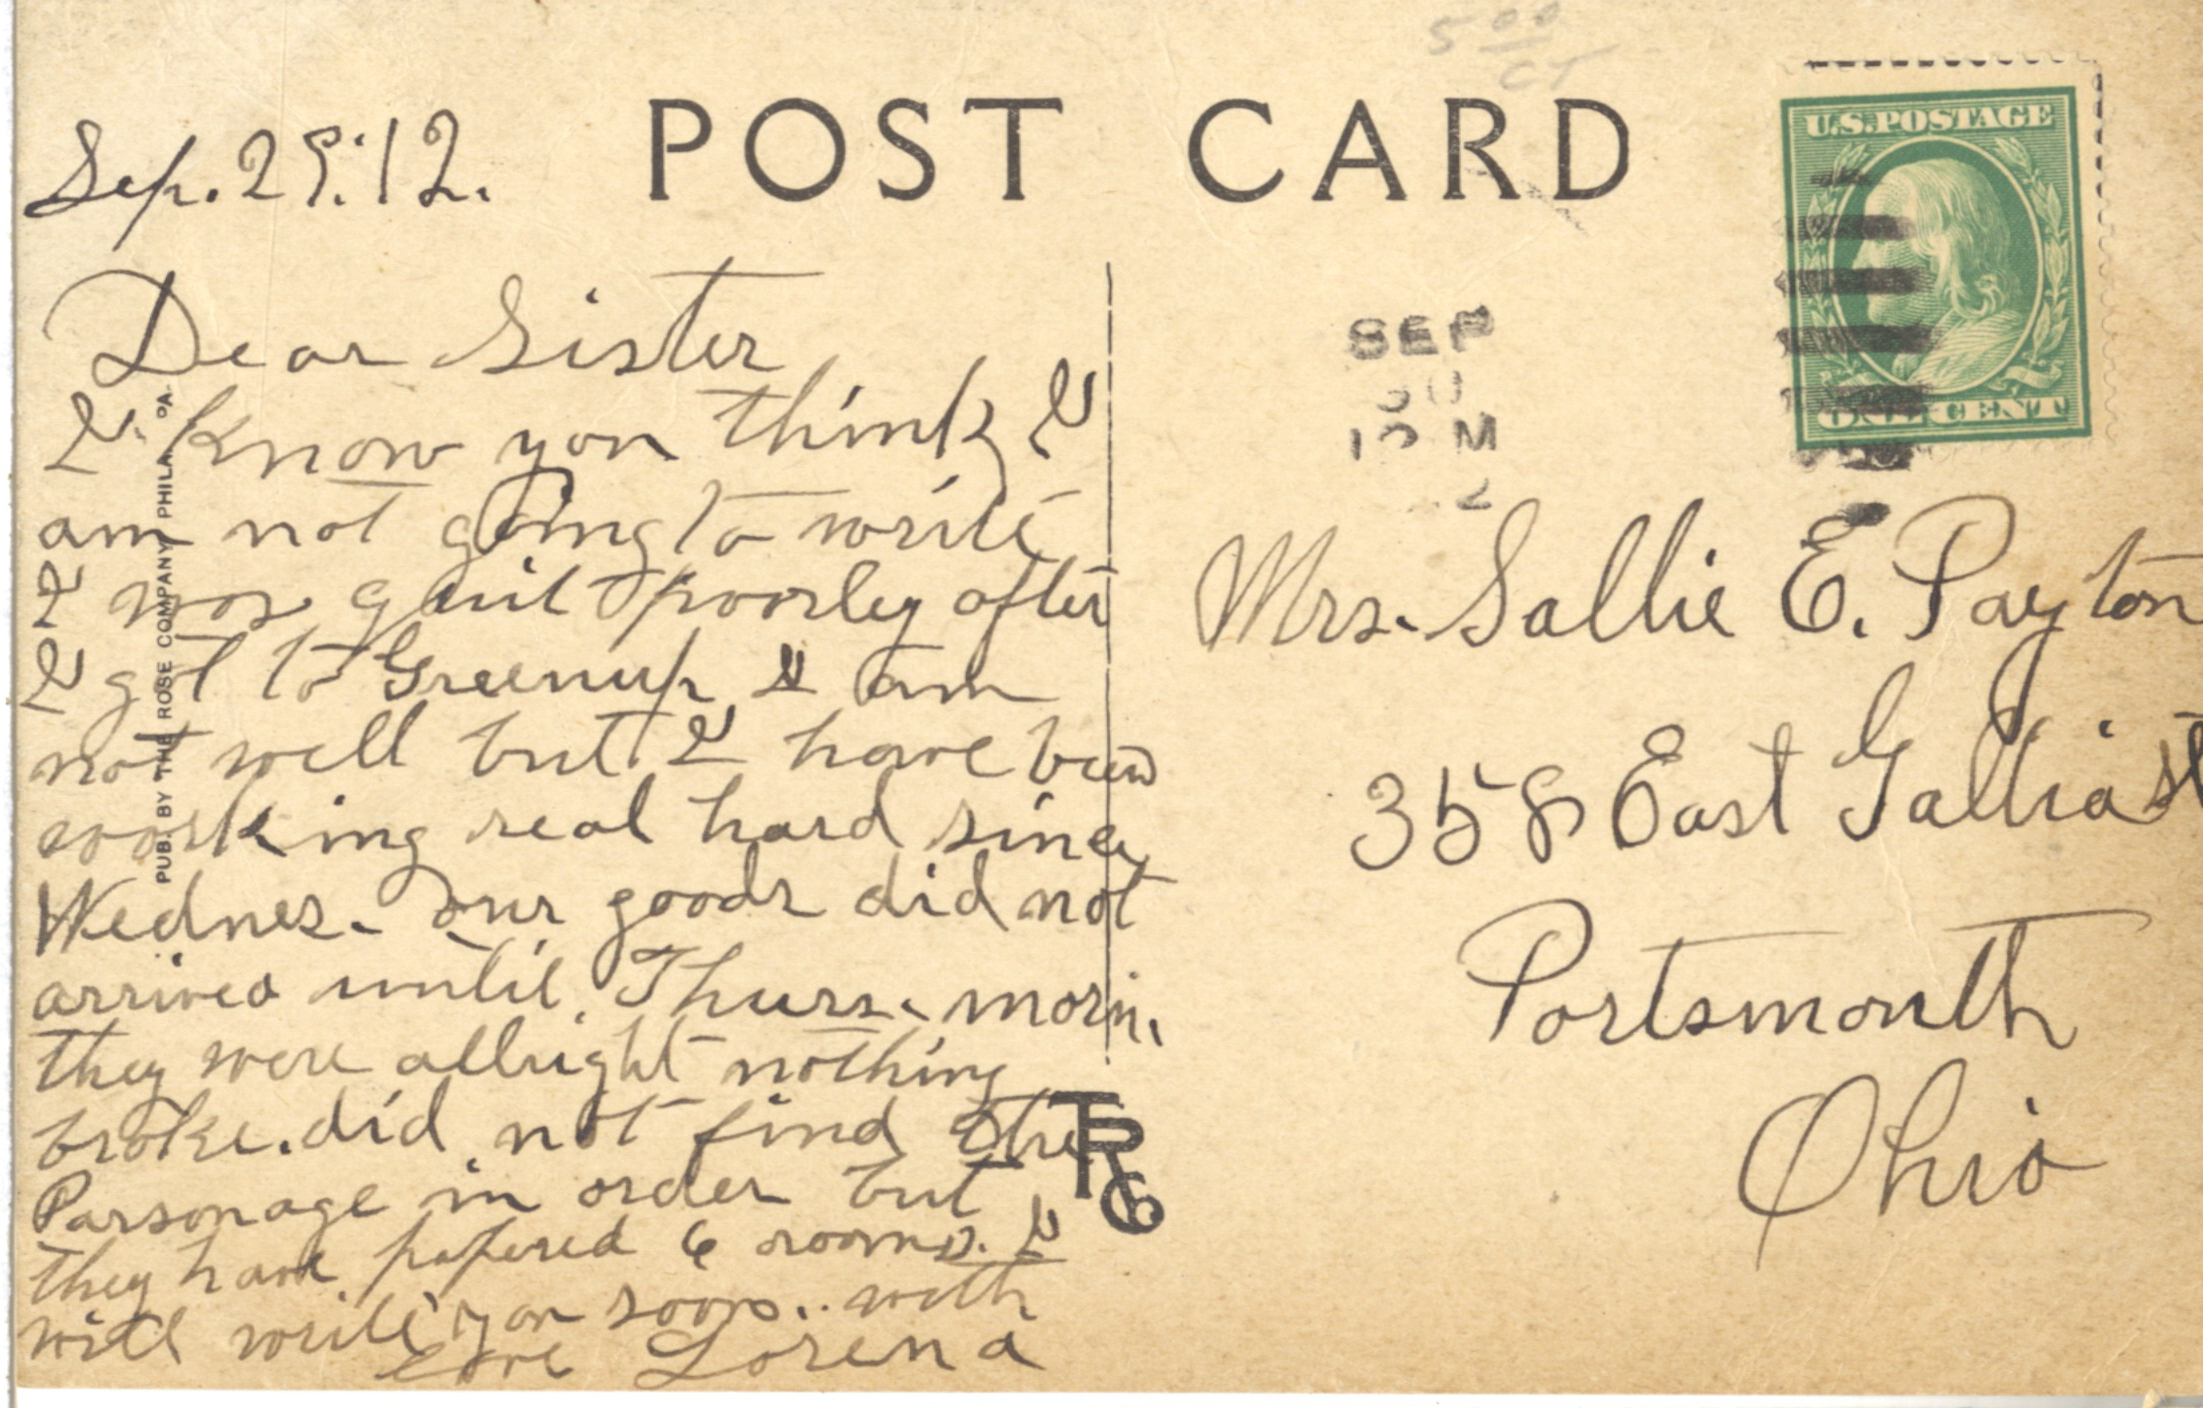 5 00
CT
POST CARD
Sep. 29. '12.
U.S. POSTAGE
ONE CENT
SEP
30
12 M
2
Dear Sister
I know you think I
am not going to write
I was quit poorley after
I got to Greenup & am
not well but I have been
working real hard since
Wednes. our goods did not
arrived until Thurs. morn.
they were allright nothing
broke. did not find the
Parsonage in order but
they have papered 6 rooms. I
will write you soon. with
Love Lorena
PUBL BY THE ROSE COMPANY PHILA. PA.
Mrs. Sallie E. Payton
358 East Gallia st
Portsmouth
Ohio
TRCo